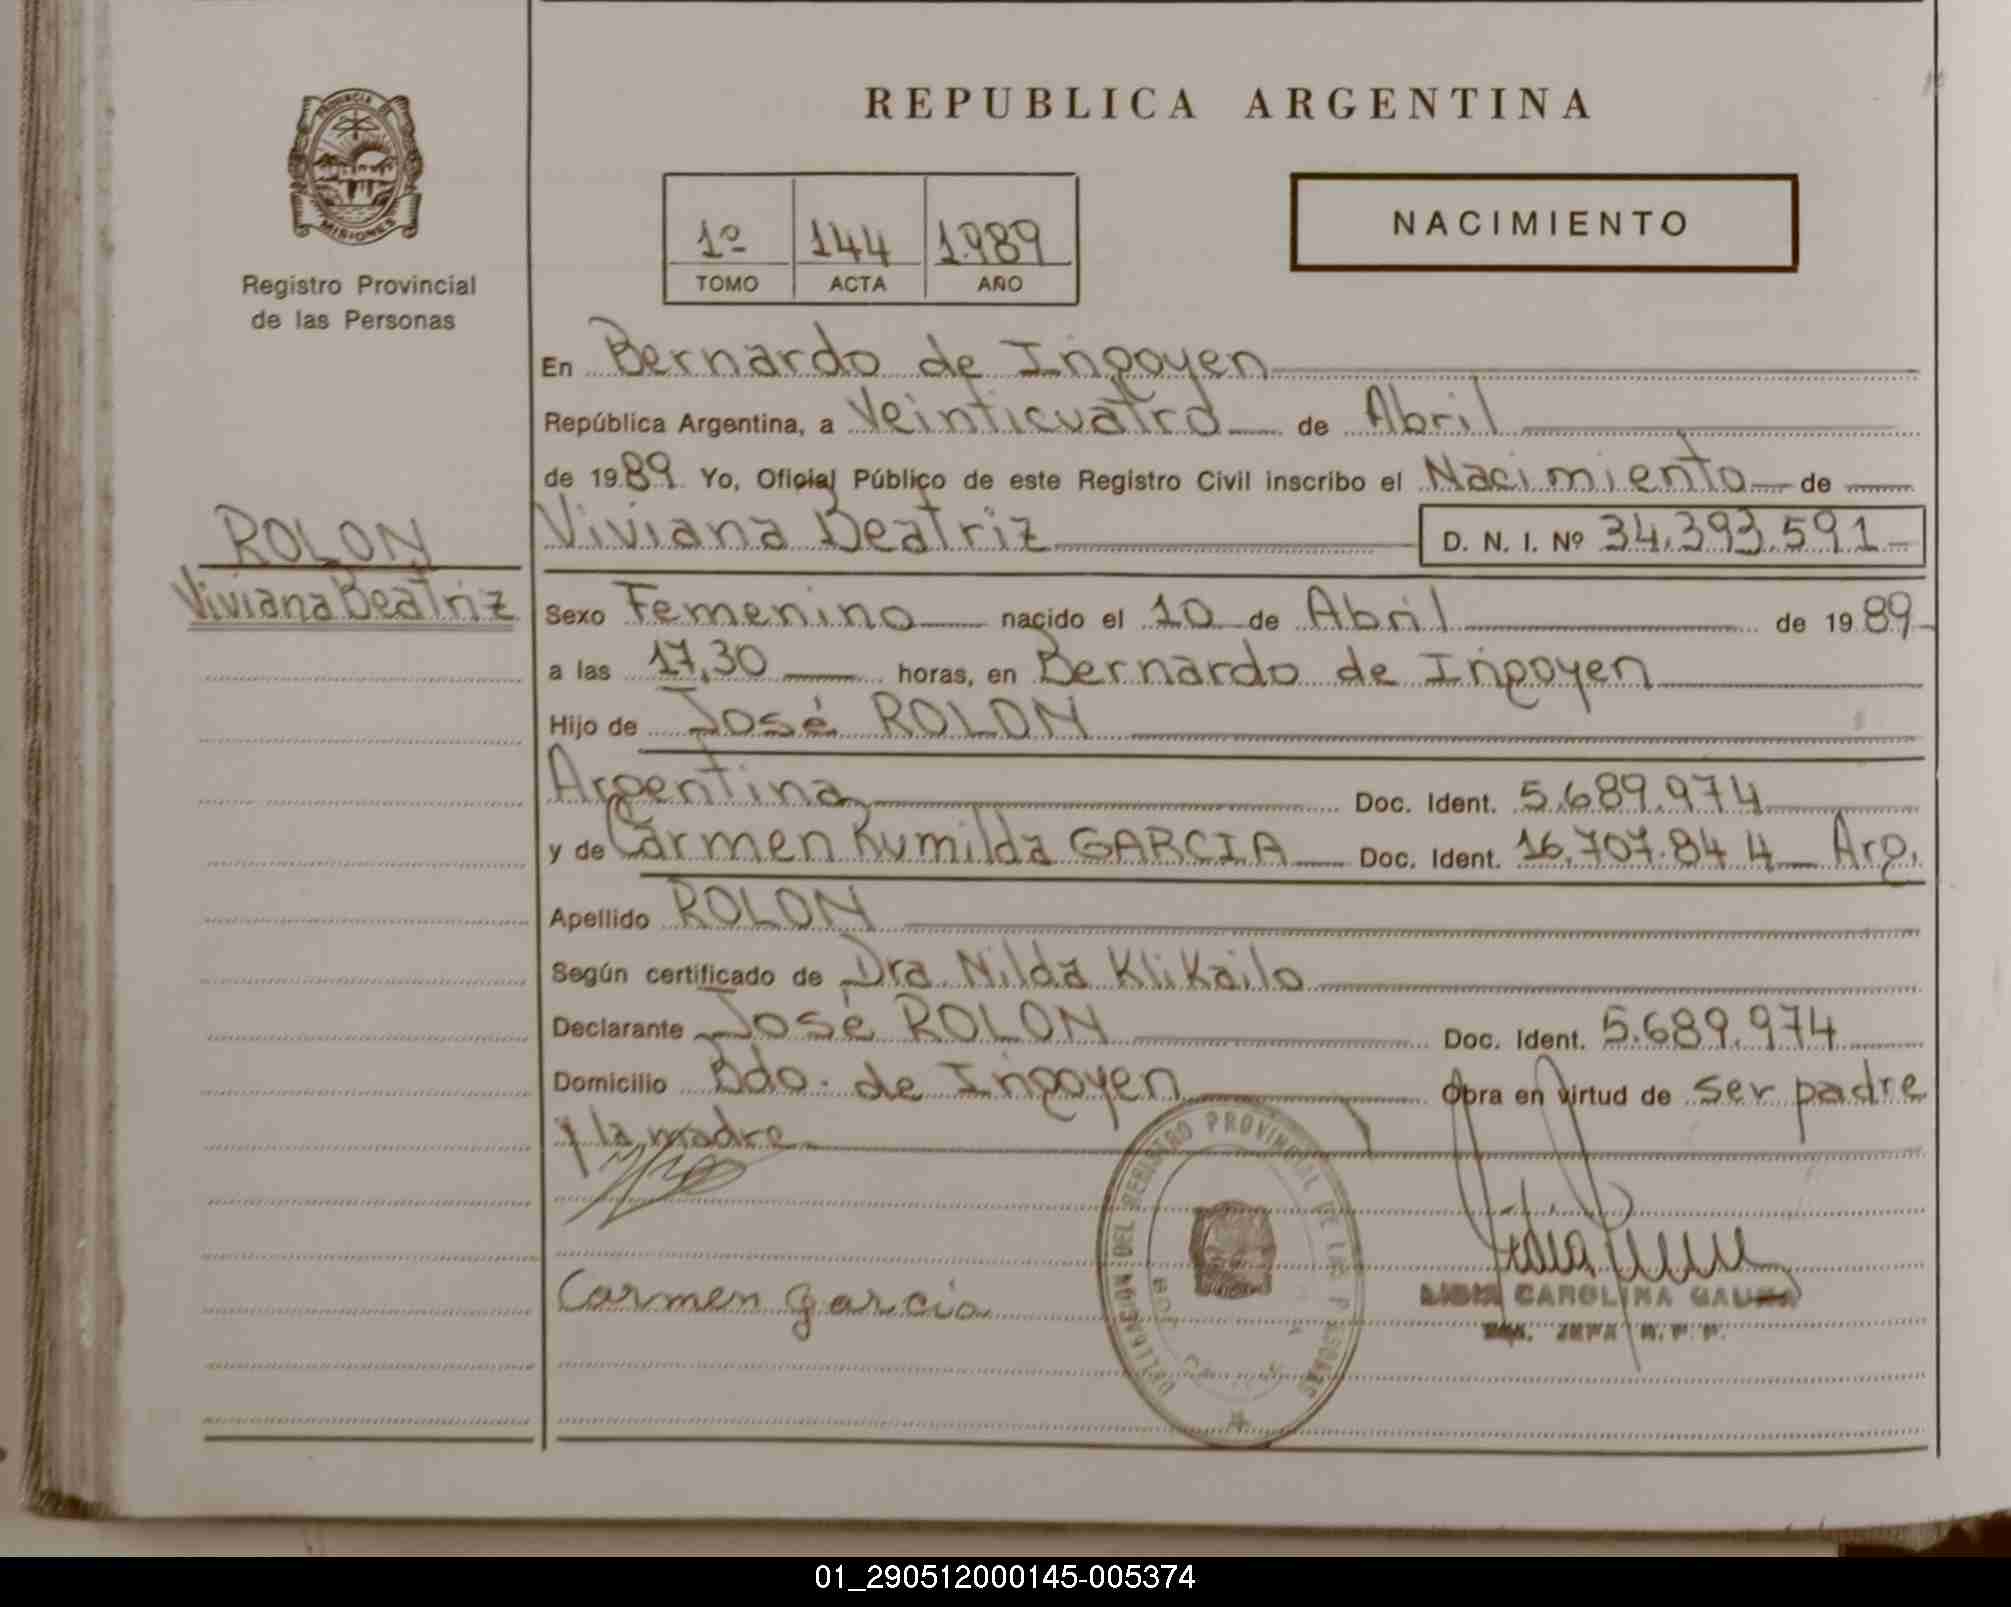 PROVINCIA
MISIONES
Registro Provincial
de las Personas
REPUBLICA ARGENTINA
1º 144 1.989
TOMO ACTA AÑO
NACIMIENTO
En Bernardo de Irigoyen
República Argentina, a Veinticuatro de Abril
de 1989 Yo, Oficial Público de este Registro Civil inscribo el Nacimiento de
Viviana Beatriz D. N. I. Nº 34.393.591
ROLON
Viviana Beatriz
Sexo Femenino nacido el 10 de Abril de 1989
a las 17,30 horas, en Bernardo de Irigoyen
Hijo de José ROLON
Argentina Doc. Ident. 5.689.974
y de Carmen Rumilda GARCIA Doc. Ident. 16.707.844 Arg.
Apellido ROLON
Según certificado de Dra. Nilda Klikailo
Declarante José ROLON Doc. Ident. 5.689.974
Domicilio Bdo. de Irigoyen Obra en virtud de ser padre
y la madre
Carmen garcia
DEL REGISTRO PROVINCIAL DE LAS PERSONAS
CAROLINA
01_290512000145-005374